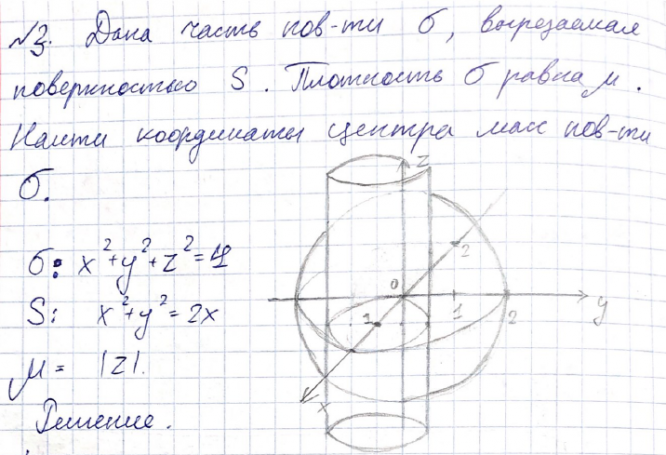 №3. Дана часть пов-ти σ, вырезаемая
поверхностью S. Плотность σ равна μ.
Найти координаты центра масс пов-ти
σ.
σ: x²+y²+z²=4
S: x²+y²=2x
μ = |z|.
Решение.
z
2
0
1
1
2
y
x